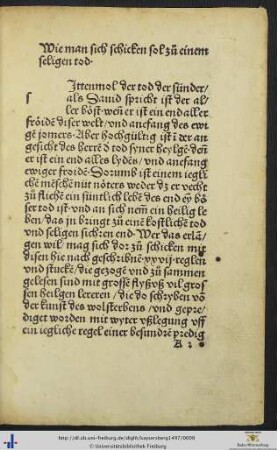 Wie man sich schicken sol zů einem
seligen tod.
s
Ittenmol der tod der sünder/
als Dauid spricht ist der al-
ler bőst weñ er ist ein end aller
frőide diser welt/vnd anfang des ewi
gē jomers. Aber hochgültig ist ī der an
gesicht des herrē ð tod syner heylgē deñ
er ist ein end alles lydēs/vnd anefang
ewiger froidē. Dorumb ist einem iegli
chē mēschē nüt nőters weder dz er vecht
zů fliehē ein süntlich lebē des end ey bő
ser tod ist vnd an sich nem ein heilig le
ben/das in bringt zů einē kőstlichē tod
vnd seligen sichrēn end. Wer das erlā/
gen wil mag sich dor zů schicken mit
disen hie nach geschribnē xxvij reglen
vnd stuckē/die gezogē vnd zů sammen
gelesen sind mit grossē flyß vß vil gros
sen heilgen lereren/die do schrybē vō
der kunst des wolsterbens/vnd gepre/
diget worden mit wyter vßlegung vff
ein iegliche regel einer besundrē predig
A 2
http://dl.ub.uni-freiburg.de/diglit/kaysersberg1497/0003
© Universitätsbibliothek Freiburg
Baden-Württemberg